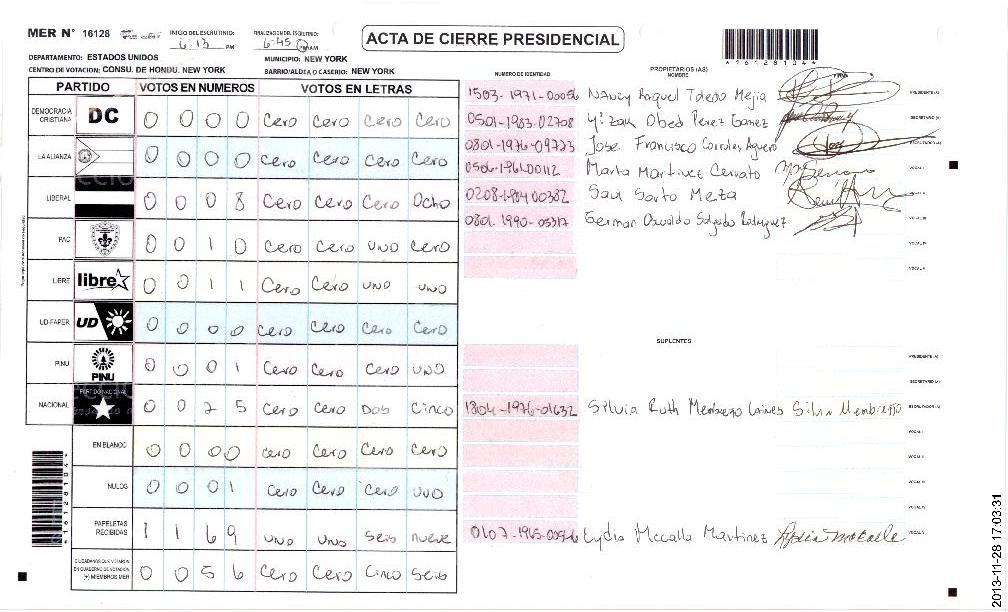 MER N° 16128 INICIO DEL ESCRUTINIO: 6:13 PM FINALIZACION DEL ESCRUTINIO: 6:45 PM/AM
ACTA DE CIERRE PRESIDENCIAL
*16128104*
DEPARTAMENTO: ESTADOS UNIDOS MUNICIPIO: NEW YORK
CENTRO DE VOTACION: CONSU. DE HONDU. NEW YORK BARRIO/ALDEA O CASERIO: NEW YORK
NUMERO DE IDENTIDAD PROPIETARIOS (AS) NOMBRE FIRMA
PARTIDO VOTOS EN NUMEROS VOTOS EN LETRAS
DEMOCRACIA CRISTIANA DC 0 0 0 0 Cero Cero Cero Cero
LA ALIANZA 0 0 0 0 Cero Cero Cero Cero
LIBERAL 0 0 0 8 Cero Cero Cero Ocho
PAC 0 0 1 0 Cero Cero uno Cero
LIBRE libre 0 0 1 1 Cero Cero uno uno
UD-FAPER UD 0 0 0 0 Cero Cero Cero Cero
PINU PINU 0 0 0 1 Cero Cero Cero uno
NACIONAL PARTIDO NACIONAL 0 0 2 5 Cero Cero Dos Cinco
EN BLANCO 0 0 0 0 Cero Cero Cero Cero
NULOS 0 0 0 1 Cero Cero Cero uno
PAPELETAS RECIBIDAS 1 1 6 9 uno uno seis nueve
CIUDADANOS QUE VOTARON EN CUADERNO DE VOTACION (+) MIEMBROS MER 0 0 5 6 Cero Cero Cinco Seis
1503-1971-00056 Nancy Raquel Toledo Mejia PRESIDENTE (A)
0501-1983-02708 Yizak Obed Perez Gomez SECRETARIO (A)
0801-1976-09723 Jose Francisco Corrales Aguero ESCRUTADOR (A)
0506-1961-00112 Marta Martinez Cervato VOCAL I
0208-1984-00382 Saul Sorto Meza VOCAL II
0801-1990-05317 German Oswaldo Salgado Rodriguez VOCAL III
VOCAL IV
VOCAL V
SUPLENTES
PRESIDENTE (A)
SECRETARIO (A)
1804-1976-01632 Silvia Ruth Membreño Laines Silvia Membreño ESCRUTADOR (A)
VOCAL I
VOCAL II
VOCAL III
VOCAL IV
0107-1965-00976 Lydia Mccalla Martinez Lydia McCalla VOCAL V
*16128104*
2013-11-28 17:03:31